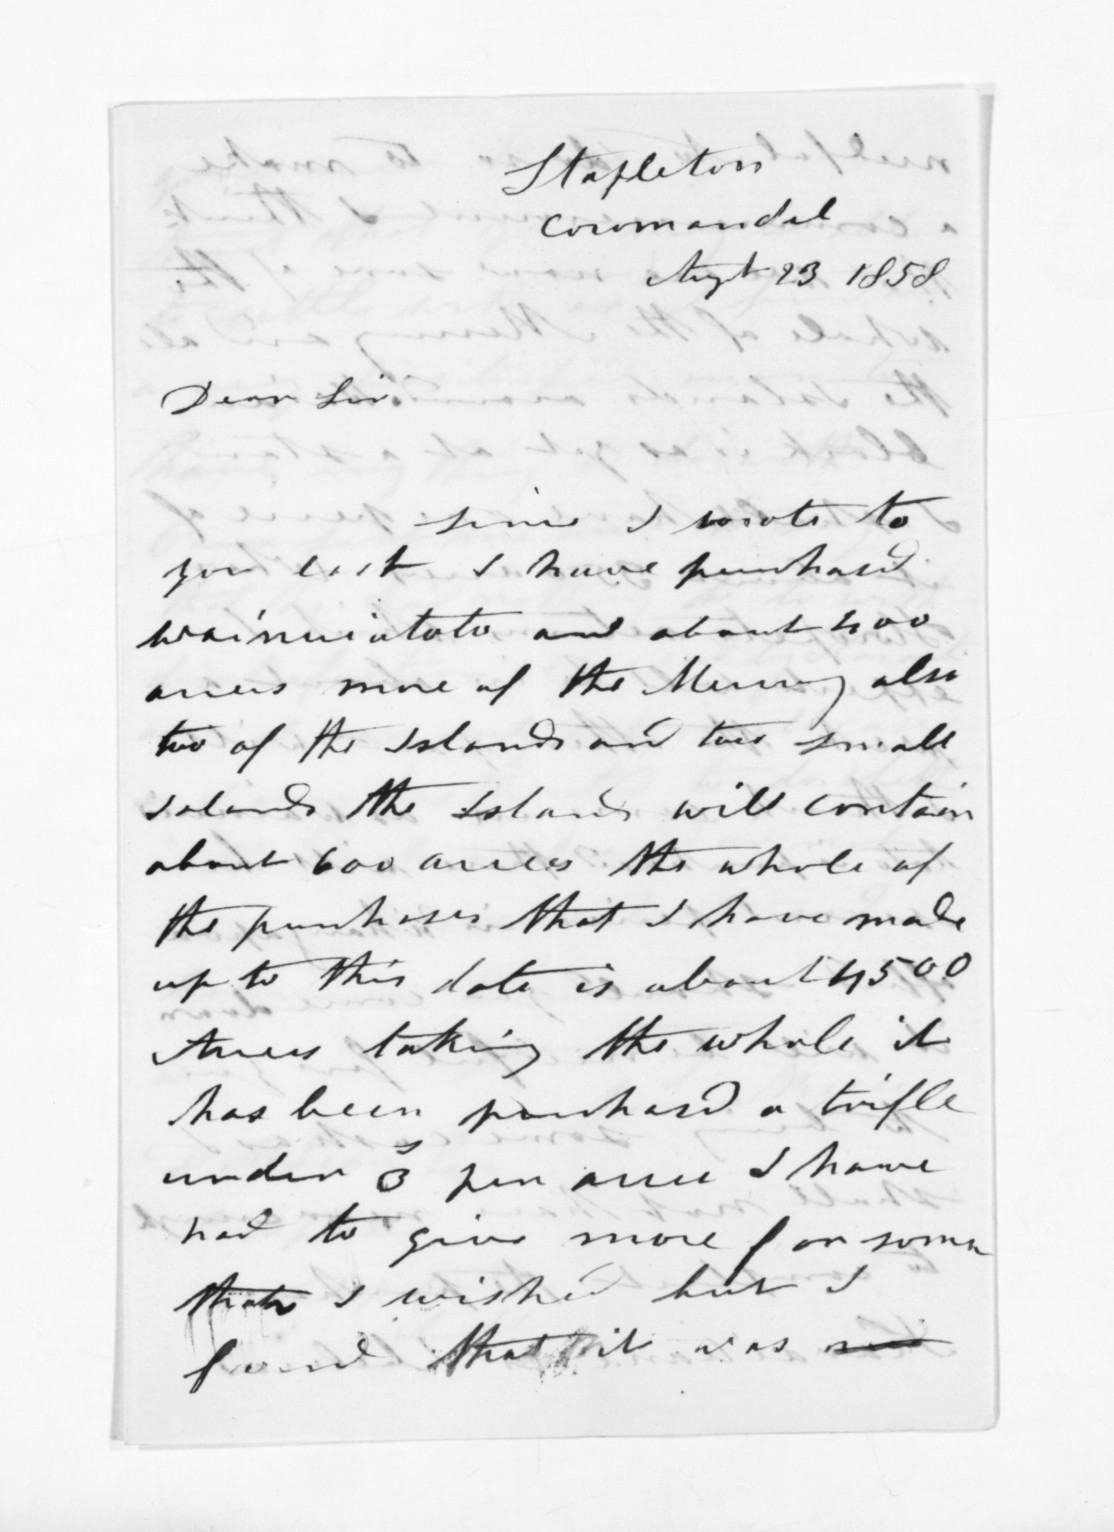 Stapleton
Coromandel
Augt 23 1858
Dear Sir
since I wrote to
you last I have purchasd
and about 400
acres more of the Mercury also
two of the Islands and two small
Islands the Islands will contain
about 600 acres the whole of
the purchases that I have made
up to this date is about 4500
Acres taking the whole it
has been purchasd a trifle
under 3 per acre I have
had to give more for some
than I wished but I
found that it was